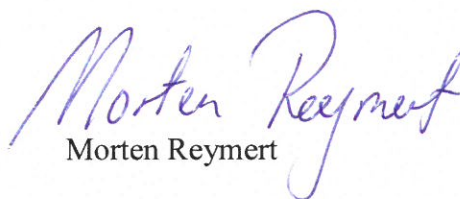 Morten Reymert
Morten Reymert